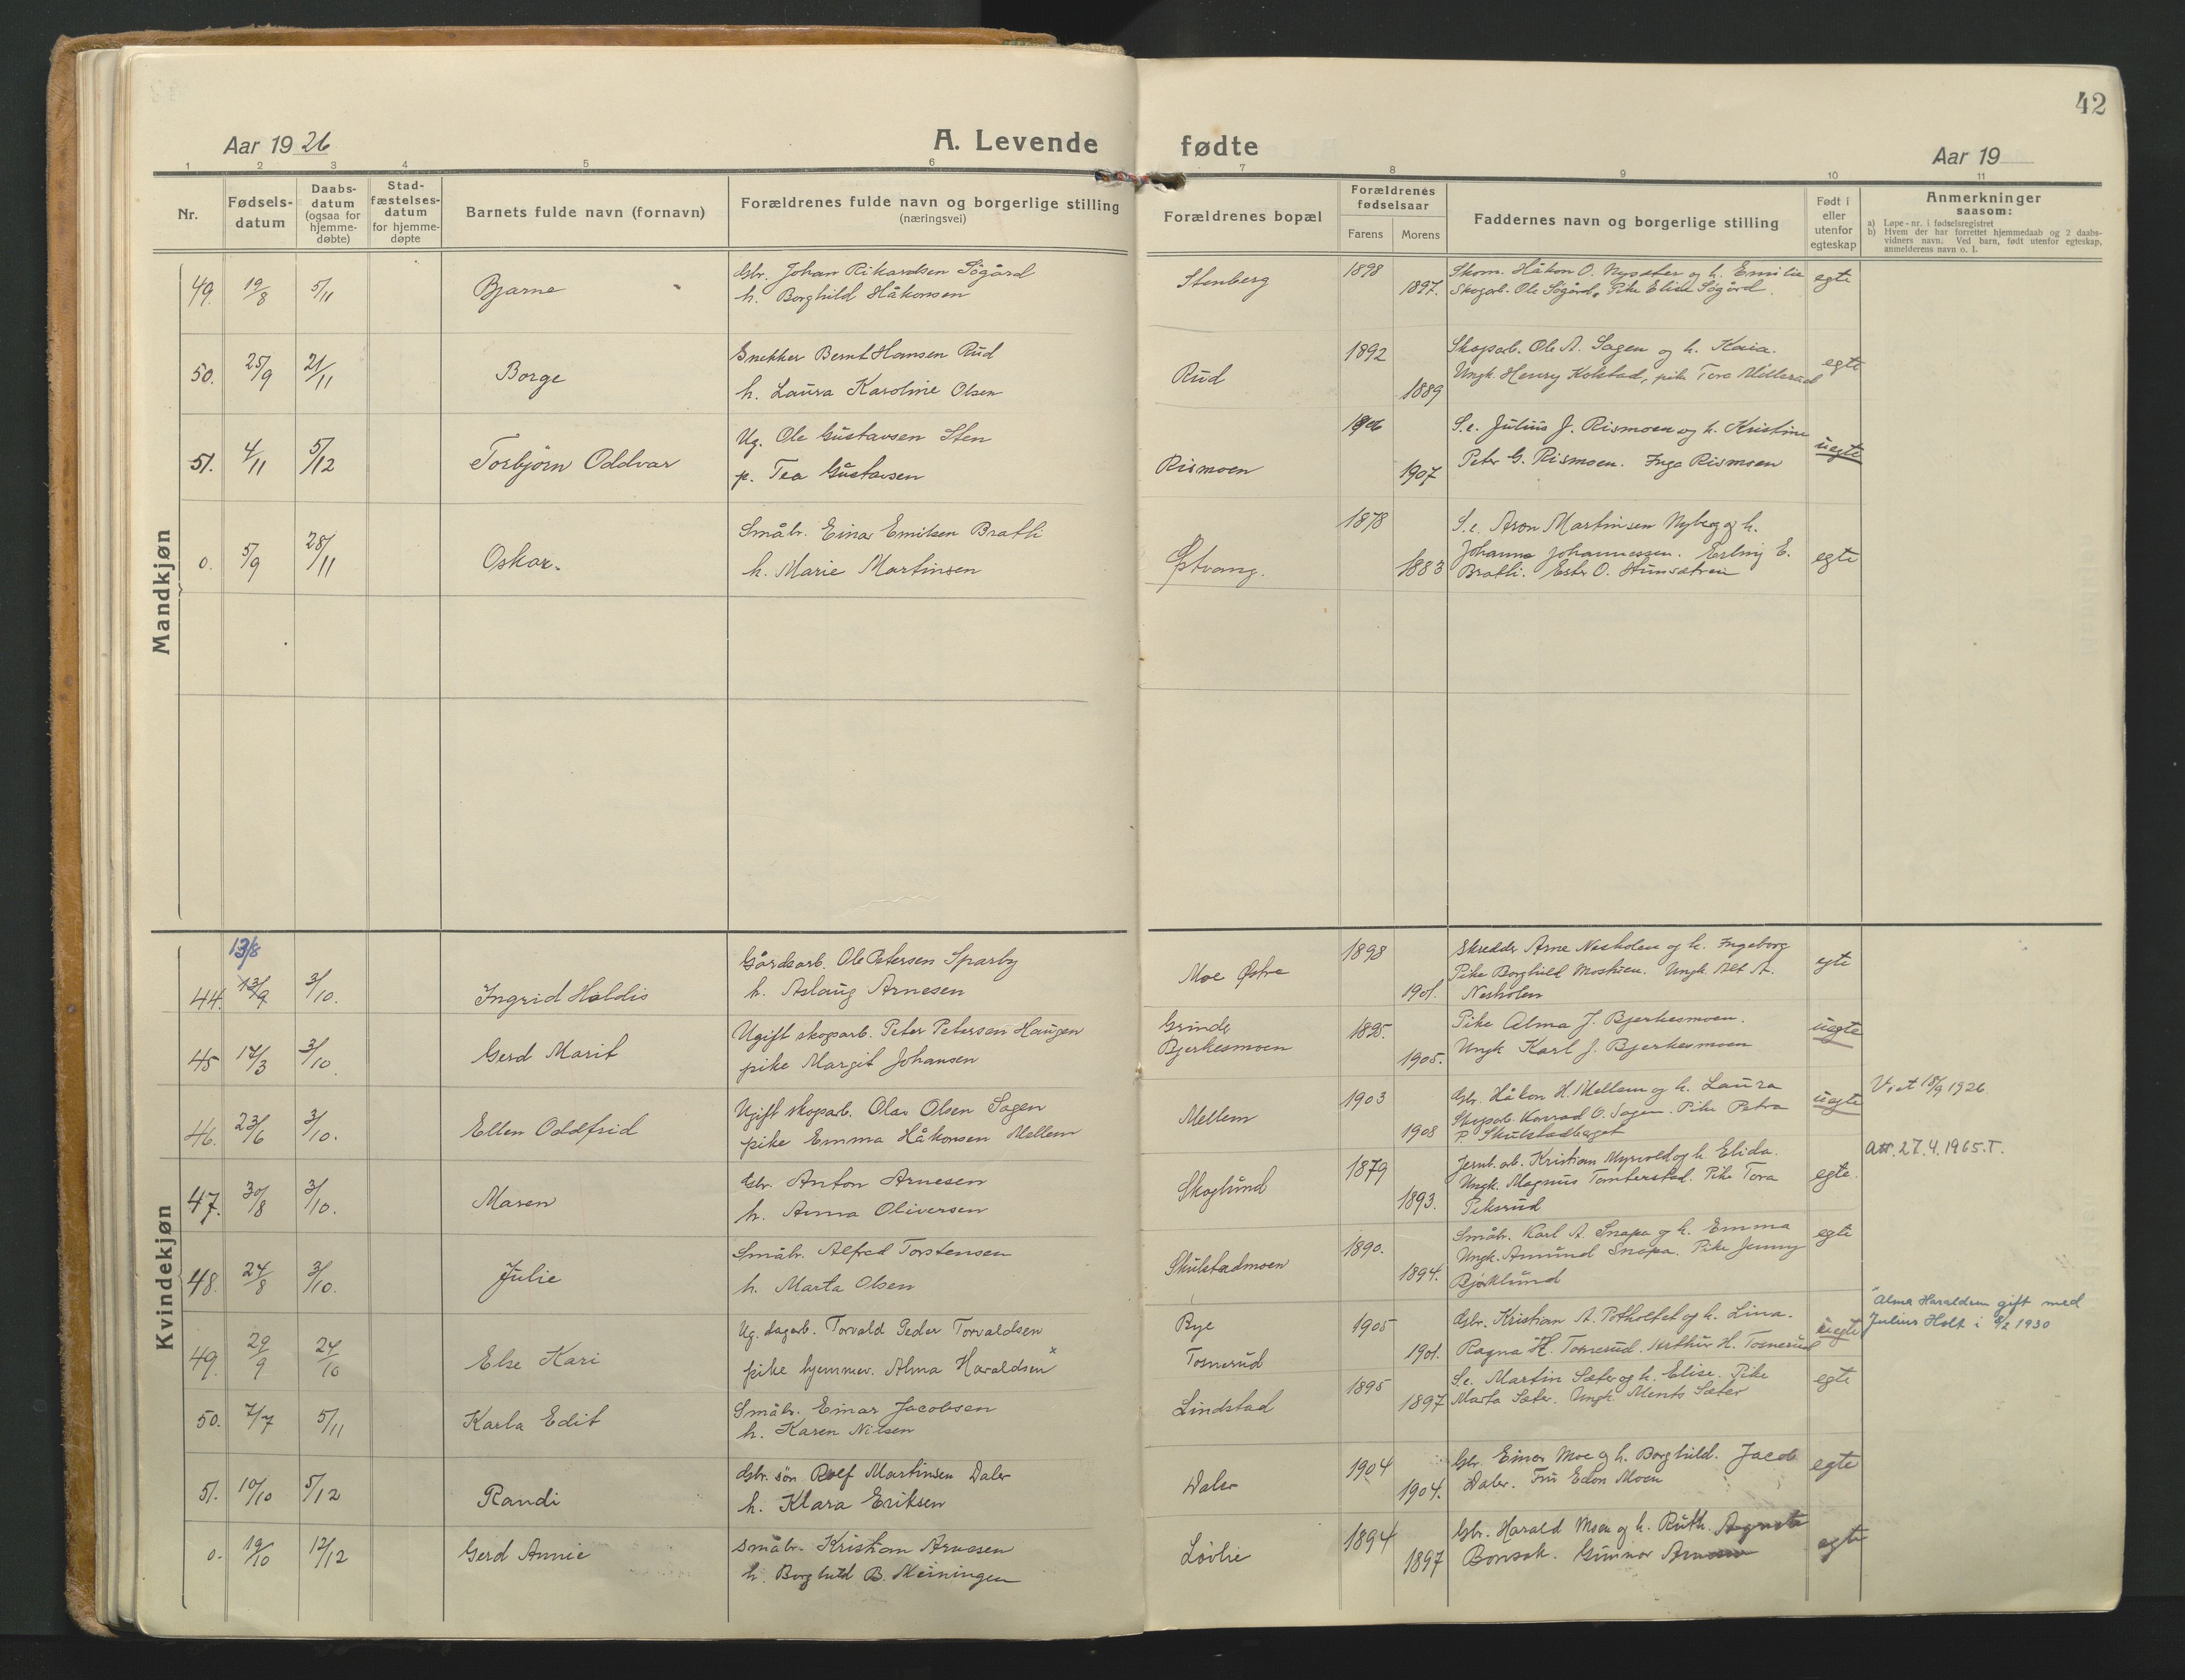 42
Aar 1926
A. Levende fødte
Aar 19
1 2 3 4 5 6 7 8 9 10 11
Nr.
Fødsels-
datum
Daabs-
datum
(ogsaa for
hjemme-
døbte)
Stad-
fæstelses-
datum
for hjemme-
døpte
Barnets fulde navn (fornavn)
Forældrenes fulde navn og borgerlige stilling
(næringsvei)
Forældrenes bopæl
Forældrenes
fødselsaar
Farens Morens
Faddernes navn og borgerlige stilling
Født i
eller
utenfor
egteskap
Anmerkninger
saasom:
a) Løpe-nr. i fødselsregistret
b) Hvem der har forrettet hjemmedaab og 2 daabs-
vidners navn. Ved barn, født utenfor egteskap,
anmelderens navn o. l.
Mandkjøn
49. 19/8 5/11 Bjarne
Gbr. Johan Rikardsen Søgård
h. Borghild Håkonsen
Stenberg
1898
1897.
Skom. Håkon O. Nysæter og h. Emilie
Skogarb. Ole Søgård, Pike Elise Søgård.
egte
50. 25/9 21/11 Borge
Snekker Bernt Hansen Rud
h. Laura Karoline Olsen
Rud
1892
1889
Skogarb. Ole A. Sagen og h. Kaia.
Ungk. Henry Kolstad, pike Tora Millerud
egte
51. 4/11 5/12 Torbjörn Oddvar
Ug. Ole Gustavsen Sten
p. Tea Gustavsen
Rismoen
1906
1907
S.e. Julius J. Rismoen og h. Kristine
Peter G. Rismoen. Inga Rismoen
uegte
0. 5/9 28/11 Oskar.
Småbr. Einar Emilsen Bratli
h. Marie Martinsen
Østvang.
1878
1883
S.e. Aron Martinsen Nyberg og h.
Johanne Johannessen. Erling E.
Bratli. Ester O. Stunsætren
egte
Kvindekjøn
13/8
44. 13/9 3/10. Ingrid Haldis
Gårdsarb. Ole Petersen Sparby
h. Aslaug Arnesen
Moe Østre
1898
1901.
Skredder Arne Nesholen og h. Ingeborg
Pike Borghild Moshien. Ungk. Alf A.
Nesholen
egte
45 17/3 3/10. Gerd Marit
Ugift skogsarb. Peter Petersen Haugen
pike Margit Johansen
Grinder
Bjerkesmoen
1895.
1905.
Pike Alma J. Bjerkesmoen.
Ungk Karl J. Bjerkesmoen
uegte
46. 23/6 3/10. Ellen Oddfrid
Ugift skogsarb. Olav Olsen Sagen
pike Emma Håkonsen Mellem
Mellem
1903
1908
Gbr. Håkon H. Mellem og h. Laura
Skogsarb. Konrad O. Sagen. Pike Petra
P. Skulstadbaget
uegte
Viet 18/9 1926
47. 30/8 3/10. Maren
Gbr. Anton Arnesen
h. Anna Oliversen
Skoglund
1879
1893.
Jernb. arb. Kristian Myrvold og h. Elida.
Ungk. Magnus Tomterstad. Pike Tora
Piksrud
egte.
Att. 27.4.1965.T.
48. 24/8 3/10. Julie
Småbr. Alfred Torstensen
h. Marta Olsen
Skulstadmoen
1890.
1894.
Småbr. Karl A. Snapa og h. Emma
Ungk. Amund Snapa. Pike Jenny
Bjørklund
egte
49. 29/9 24/10 Else Kari
Ug. dagarb. Torvald Peder Torvaldsen
pike hjemmev. Alma Haraldsen x
Rye
Tosnerud
1905
1901.
Gbr. Kristian A. Potholtet og h. Lina.
Ragna H. Tosnerud. Arthur H. Tosnerud
uegte
Alma Haraldsen gift med
Julius Holt i 8/2 1930
50. 7/7 5/11 Karla Edit
Småbr. Einar Jacobsen
h. Karen Nilsen
Lindstad
1895
1897
S.e. Martin Sæter og h. Elise. Pike
Marta Sæter. Ungk. Ments Sæter
egte
51. 10/10 5/12 Randi
Gbr. søn Rolf Martinsen Daler
h. Klara Eriksen
Daler
1904
1904.
Gbr. Einar Moe og h. Borghild. Jacob
Daler. Fru Edon Moen
egte
0. 19/10 12/12 Gerd Annie
Småbr. Kristian Arnesen
h. Borghild B. Meiningen
Løvlie
1894
1897
Gbr. Harald Moen og h. Ruth. Agnete
Bonsak. Gunnar Arnesen
egte